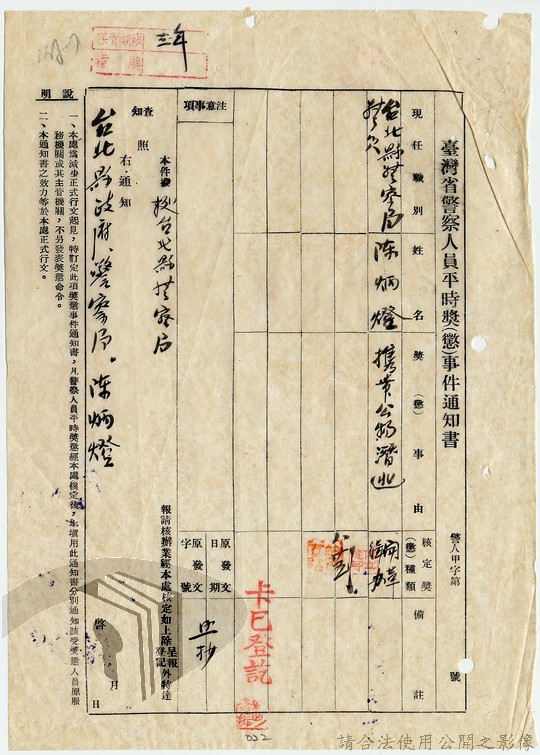 臺灣省警察人員平時獎(懲)事件通知書
警人甲字第 號
現任職別
姓名
獎(懲)事由
核定獎(懲)種類
備註
台北縣警察局
警員
陳炳燈
携帶公物潛逃
開革
卡已登訖
注意事項
原發文日期
原發文字號
查知照
本件據台北縣警察局
報請核辦業經本處核定如上除呈報登記外特達
右通知
台北縣政府、警察局。陳炳燈
啓 月 日
說明
一、本處為減少正式行文起見,特訂定此項獎懲事件通知書,凡警察人員平時獎懲經本處核定後,即填用此通知書分別通知該受獎懲人員原服
務機關或其主管機關,不另發表獎懲命令。
二、本通知書之效力等於本處正式行文。
保管期限
三年
檔號
032
請合法使用公開之影像